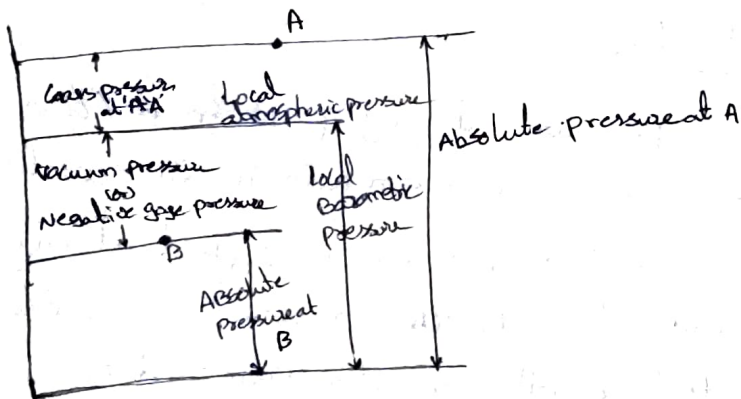 A
at 'A'
Local
atmospheric pressure
Absolute pressure at A
Vacuum pressure
(or)
Negative gage pressure
Local
Barometric
pressure
B
ABsolute
pressure at
B